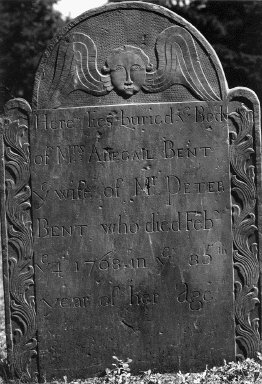 Here lies buried yᵉ Body
of Mʳˢ ABEGAIL BENT
yᵉ wife of Mʳ PETER
BENT who died Febʳʸ
yᵉ 4ᵗʰ 1768 in yᵉ 85ᵗʰ
year of her age